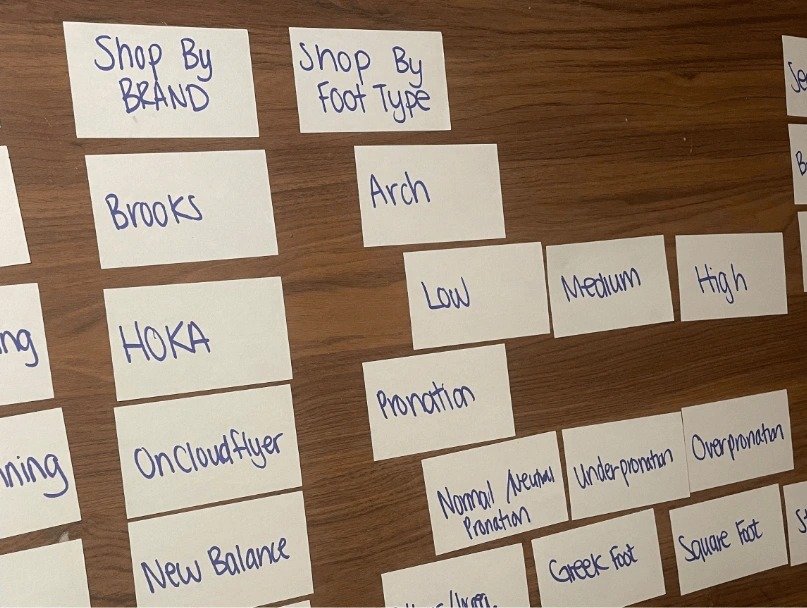 Shop By
BRAND
Shop By
Foot Type
Brooks
Arch
Low
Medium
High
HOKA
ng
Pronation
OnCloudflyer
Normal/Neutral
Pronation
Underpronation
Overpronation
ning
New Balance
Greek Foot
Square Foot